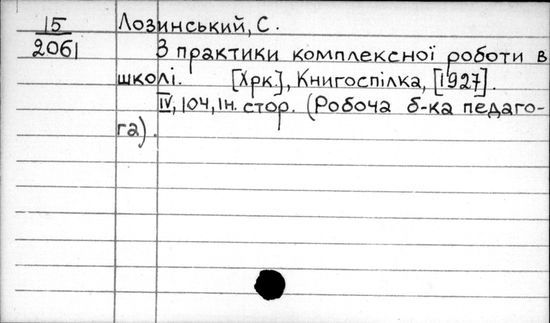 15
2061
Лозинський, С.
З практики комплексної роботи в
школі. [Хрк.], Книгоспілка, [1927].
IV, 104, Ін. стор. (Робоча б-ка педаго-
га).